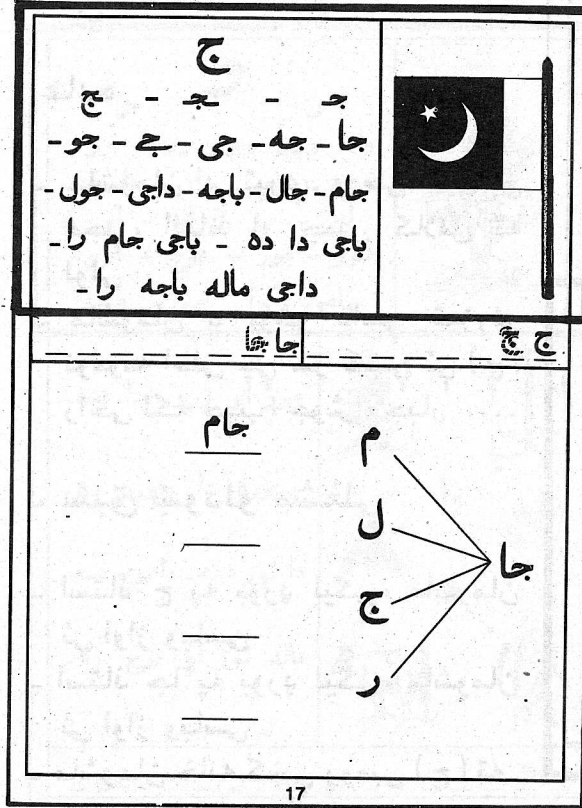 ج
جـ - ـجـ - ـج
جا - جه - جی - جے - جو -
جام - جال - باجه - داجی - جول -
باجی دا ده - باجی جام را -
داجی ماله باجه را -
ج ج
جا جا
جام
م
ل
جا
ج
ر
17